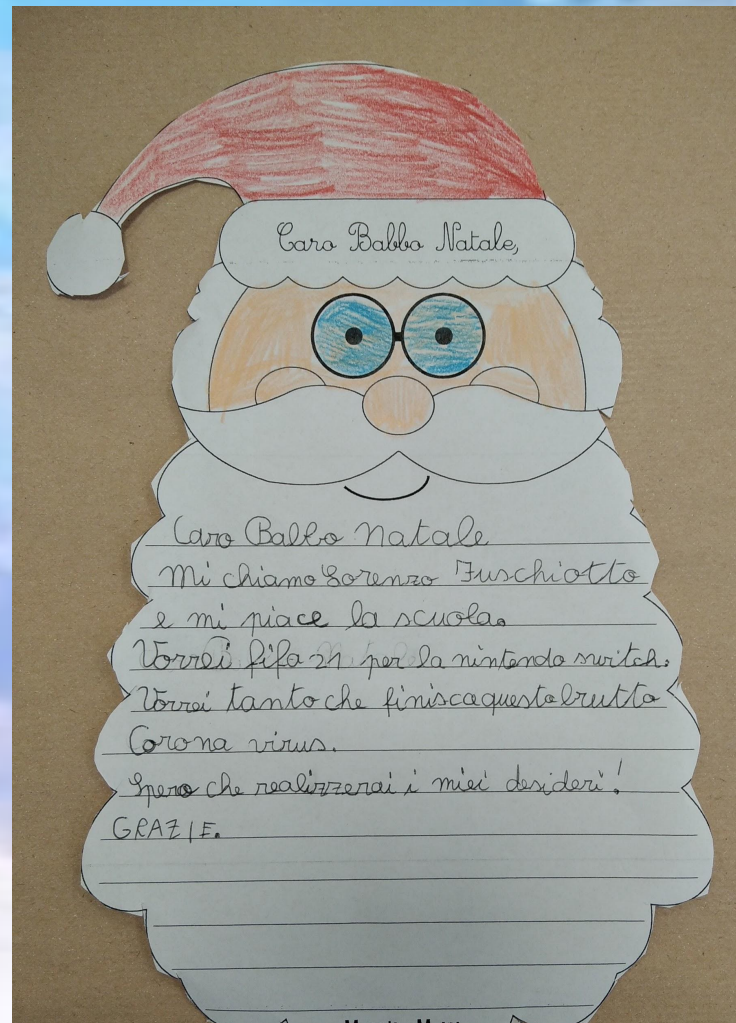 Caro Babbo Natale,
Caro Babbo Natale
Mi chiamo Lorenzo Fuschiotto
e mi piace la scuola.
Vorrei fifa 21 per la nintendo switch.
Vorrei tanto che finisca questo brutto
Corona virus.
Spero che realizzerai i miei desideri!
GRAZIE.